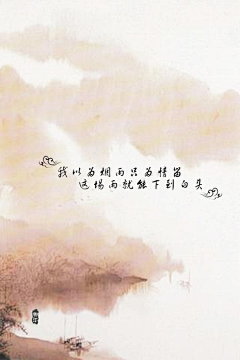 我以为烟雨只为情留
这场雨就能下到白头